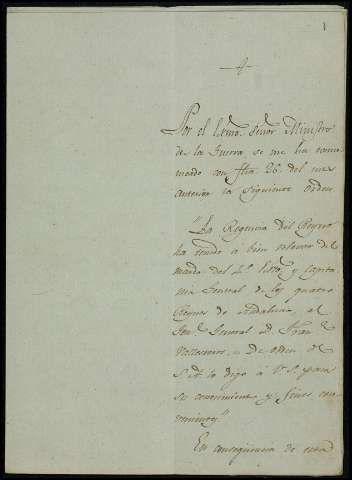 1
Por el Exmo. Señor Ministro
de la Guerra se me ha comu
nicado con fha 26. del mes
anterior la siguiente orden
"La Regencia del Reyno
ha tenido á bien relevar del
mando del 4.º Exto. y Capita
nia General de los quatro
Reynos de Andalucia, al
General D. Fran.co
Ballesteros. De orden de
S. A. lo digo á V. S. para
su conocimiento y fines con
venientes"
En consequencia de esta